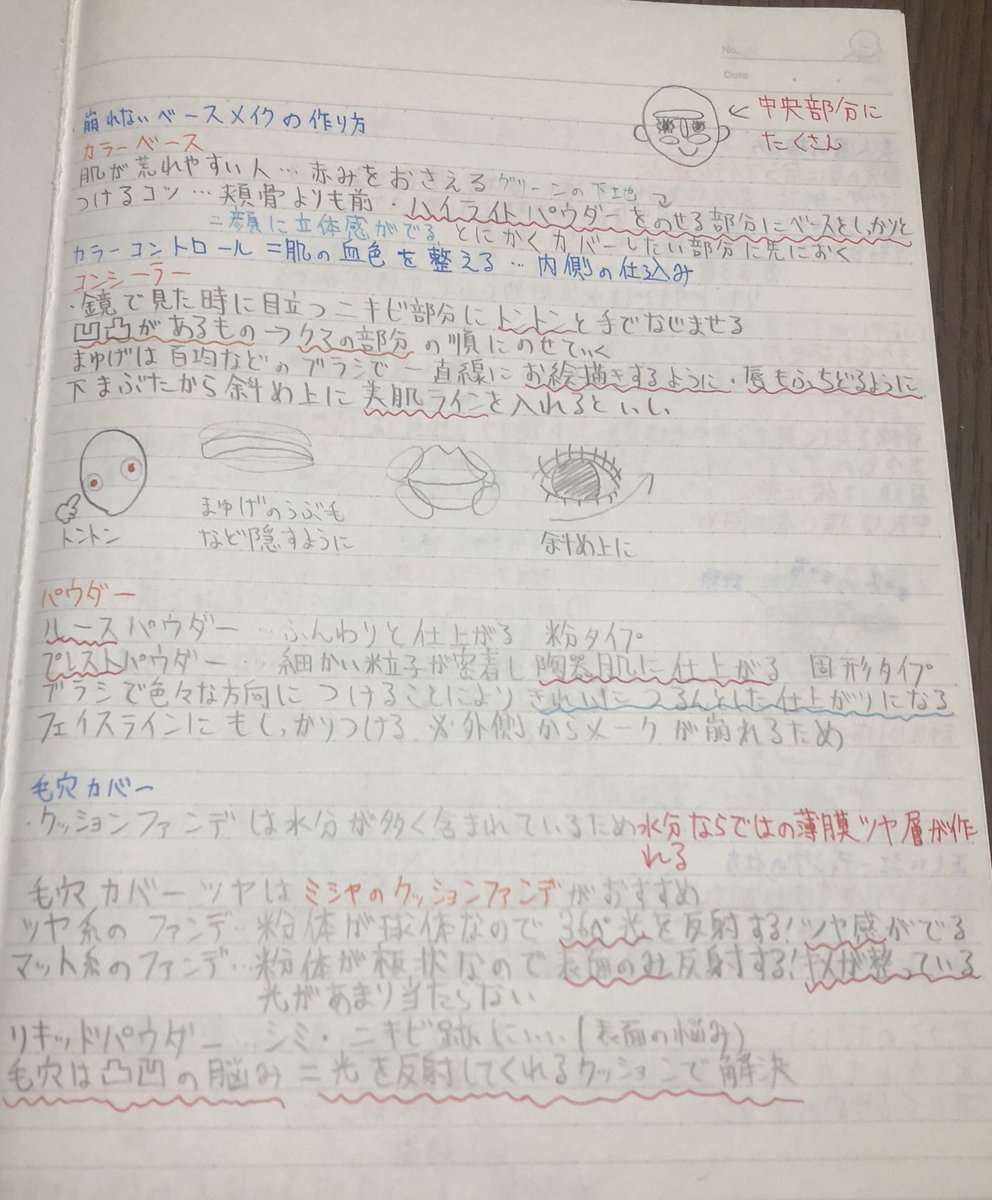 No.
Date
・崩れないベースメイクの作り方
←中央部分に
たくさん
カラーベース
肌が荒れやすい人…赤みをおさえるグリーンの下地で
つけるコツ…頬骨よりも前・ハイライトパウダーをのせる部分にベースをしっかりと
=顔に立体感がでる、とにかくカバーしたい部分に先におく
カラーコントロール=肌の血色を整える…内側の仕込み
コンシーラー
・鏡で見た時に目立つニキビ部分にトントンと手でなじませる
凹凸があるもの→クマの部分の順にのせていく
まゆげは百均などのブラシで一直線にお絵描きするように・唇もふちどるように
下まぶたから斜め上に美肌ラインを入れるといい
トントン
まゆげのうぶ毛
など隠すように
斜め上に
パウダー
ルースパウダー…ふんわりと仕上がる 粉タイプ
プレストパウダー…細かい粒子が密着し陶器肌に仕上がる 固形タイプ
ブラシで色々な方向につけることによりきれいにつるんとした仕上がりになる
フェイスラインにもしっかりつける ※外側からメークが崩れるため
毛穴カバー
・クッションファンデは水分が多く含まれているため水分ならではの薄膜ツヤ層が作
れる
毛穴カバーツヤはミシャのクッションファンデがおすすめ
ツヤ系のファンデ…粉体が球体なので360°光を反射する!ツヤ感がでる
マット系のファンデ…粉体が板状なので表面のみ反射する!キメが整っている
光があまり当たらない
リキッドパウダー…シミ・ニキビ跡にいい(表面の悩み)
毛穴は凸凹の脳み=光を反射してくれるクッションで解決